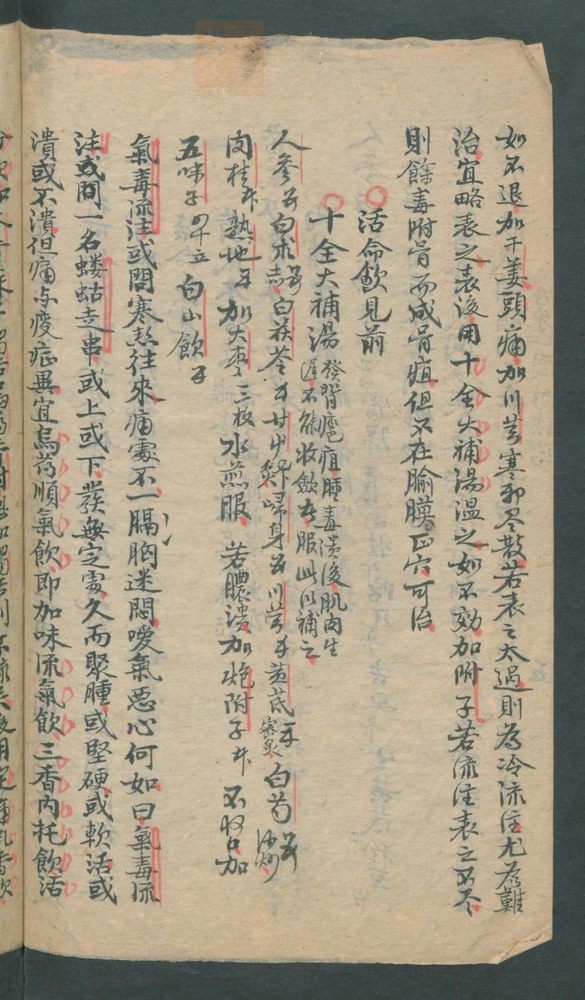 如不退加干姜頭痛加川芎寒邪尽散若表之太過則為冷流注尤為難
治宜略表之表後用十全大補湯温之如不効加附子若流注表之不尽
則餘毒附骨而成骨疽但不在腧膜正穴可治
活命飲見前
十全大補湯 發背癰疽腫毒潰後肌肉生遲不能收斂者服此以補之
人參 白朮 白茯苓 甘草 歸身 川芎 黄芪 蜜炙 白芍 酒炒
肉桂 熟地 加大枣三枚水煎服 若膿潰加炮附子 不收口加
五味子 白山飲
氣毒流注或問寒热往來痛處不一膈胸迷悶噯氣恶心何如曰氣毒流
注或問一名蝼蛄走串或上或下發無定處久而聚腫或堅硬或軟活或
潰或不潰但痛与痰症異宜烏药順氣飲即加味流氣飲三香内托飲活